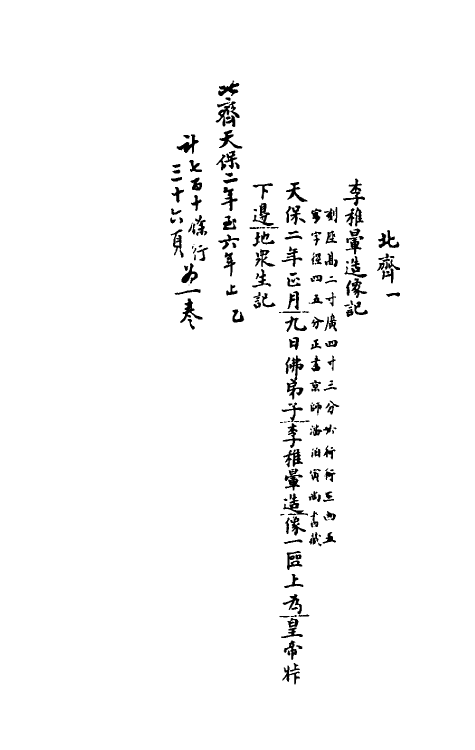 北齊一
李稚暈造像記
刻座高二寸廣四寸三分廿行行三兩五
字字徑四五分正書京師潘伯寅尚書藏
天保二年正月九日佛弟子李稚暈造像一區上為皇帝
下邊地眾生記
北齊天保二年至六年止乙
計七百十條行
三十六頁為一卷